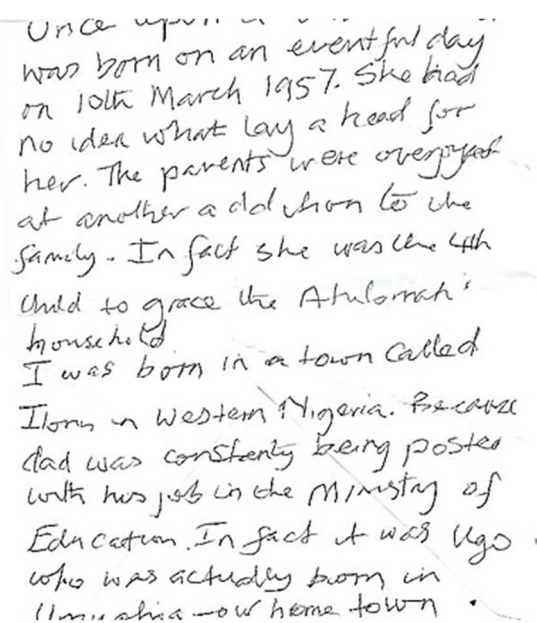 Once upon a
was born on an eventful day
on 10th March 1957. She had
no idea what lay a head for
her. The parents were overjoyed
at another addition to the
family. In fact she was the 4th
child to grace the
household
I was born in a town called
in Western Nigeria. Because
dad was constantly being posted
with his job in the Ministry of
Education. In fact it was Ugo
who was actually born in
Umuahia - our home town.